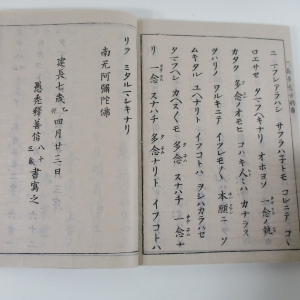 ユニマフシアラハシ サフラハナトモ コレニテ コヽ
ロエサセ タマフヘキナリ オホヨソ 一念ノ執
カタク 多念ノオモヒ コハキ人々ハ カナラス
ヲハリノ ワルキニテ イツレモノヽ 本願ニ ソ
ムキタル ユヘナリト イフコトハ ヲシハカラハセ
タマフヘシ カヘスくモ 多念 スナハチ 一念ナ
リ 一念 スナハチ 多念ナリト イフコトハ
リヲ ミタルマシキナリ
南无阿彌陀佛
建長七歳乙卯四月廿三日
愚禿釋善信八十三歳書寫之